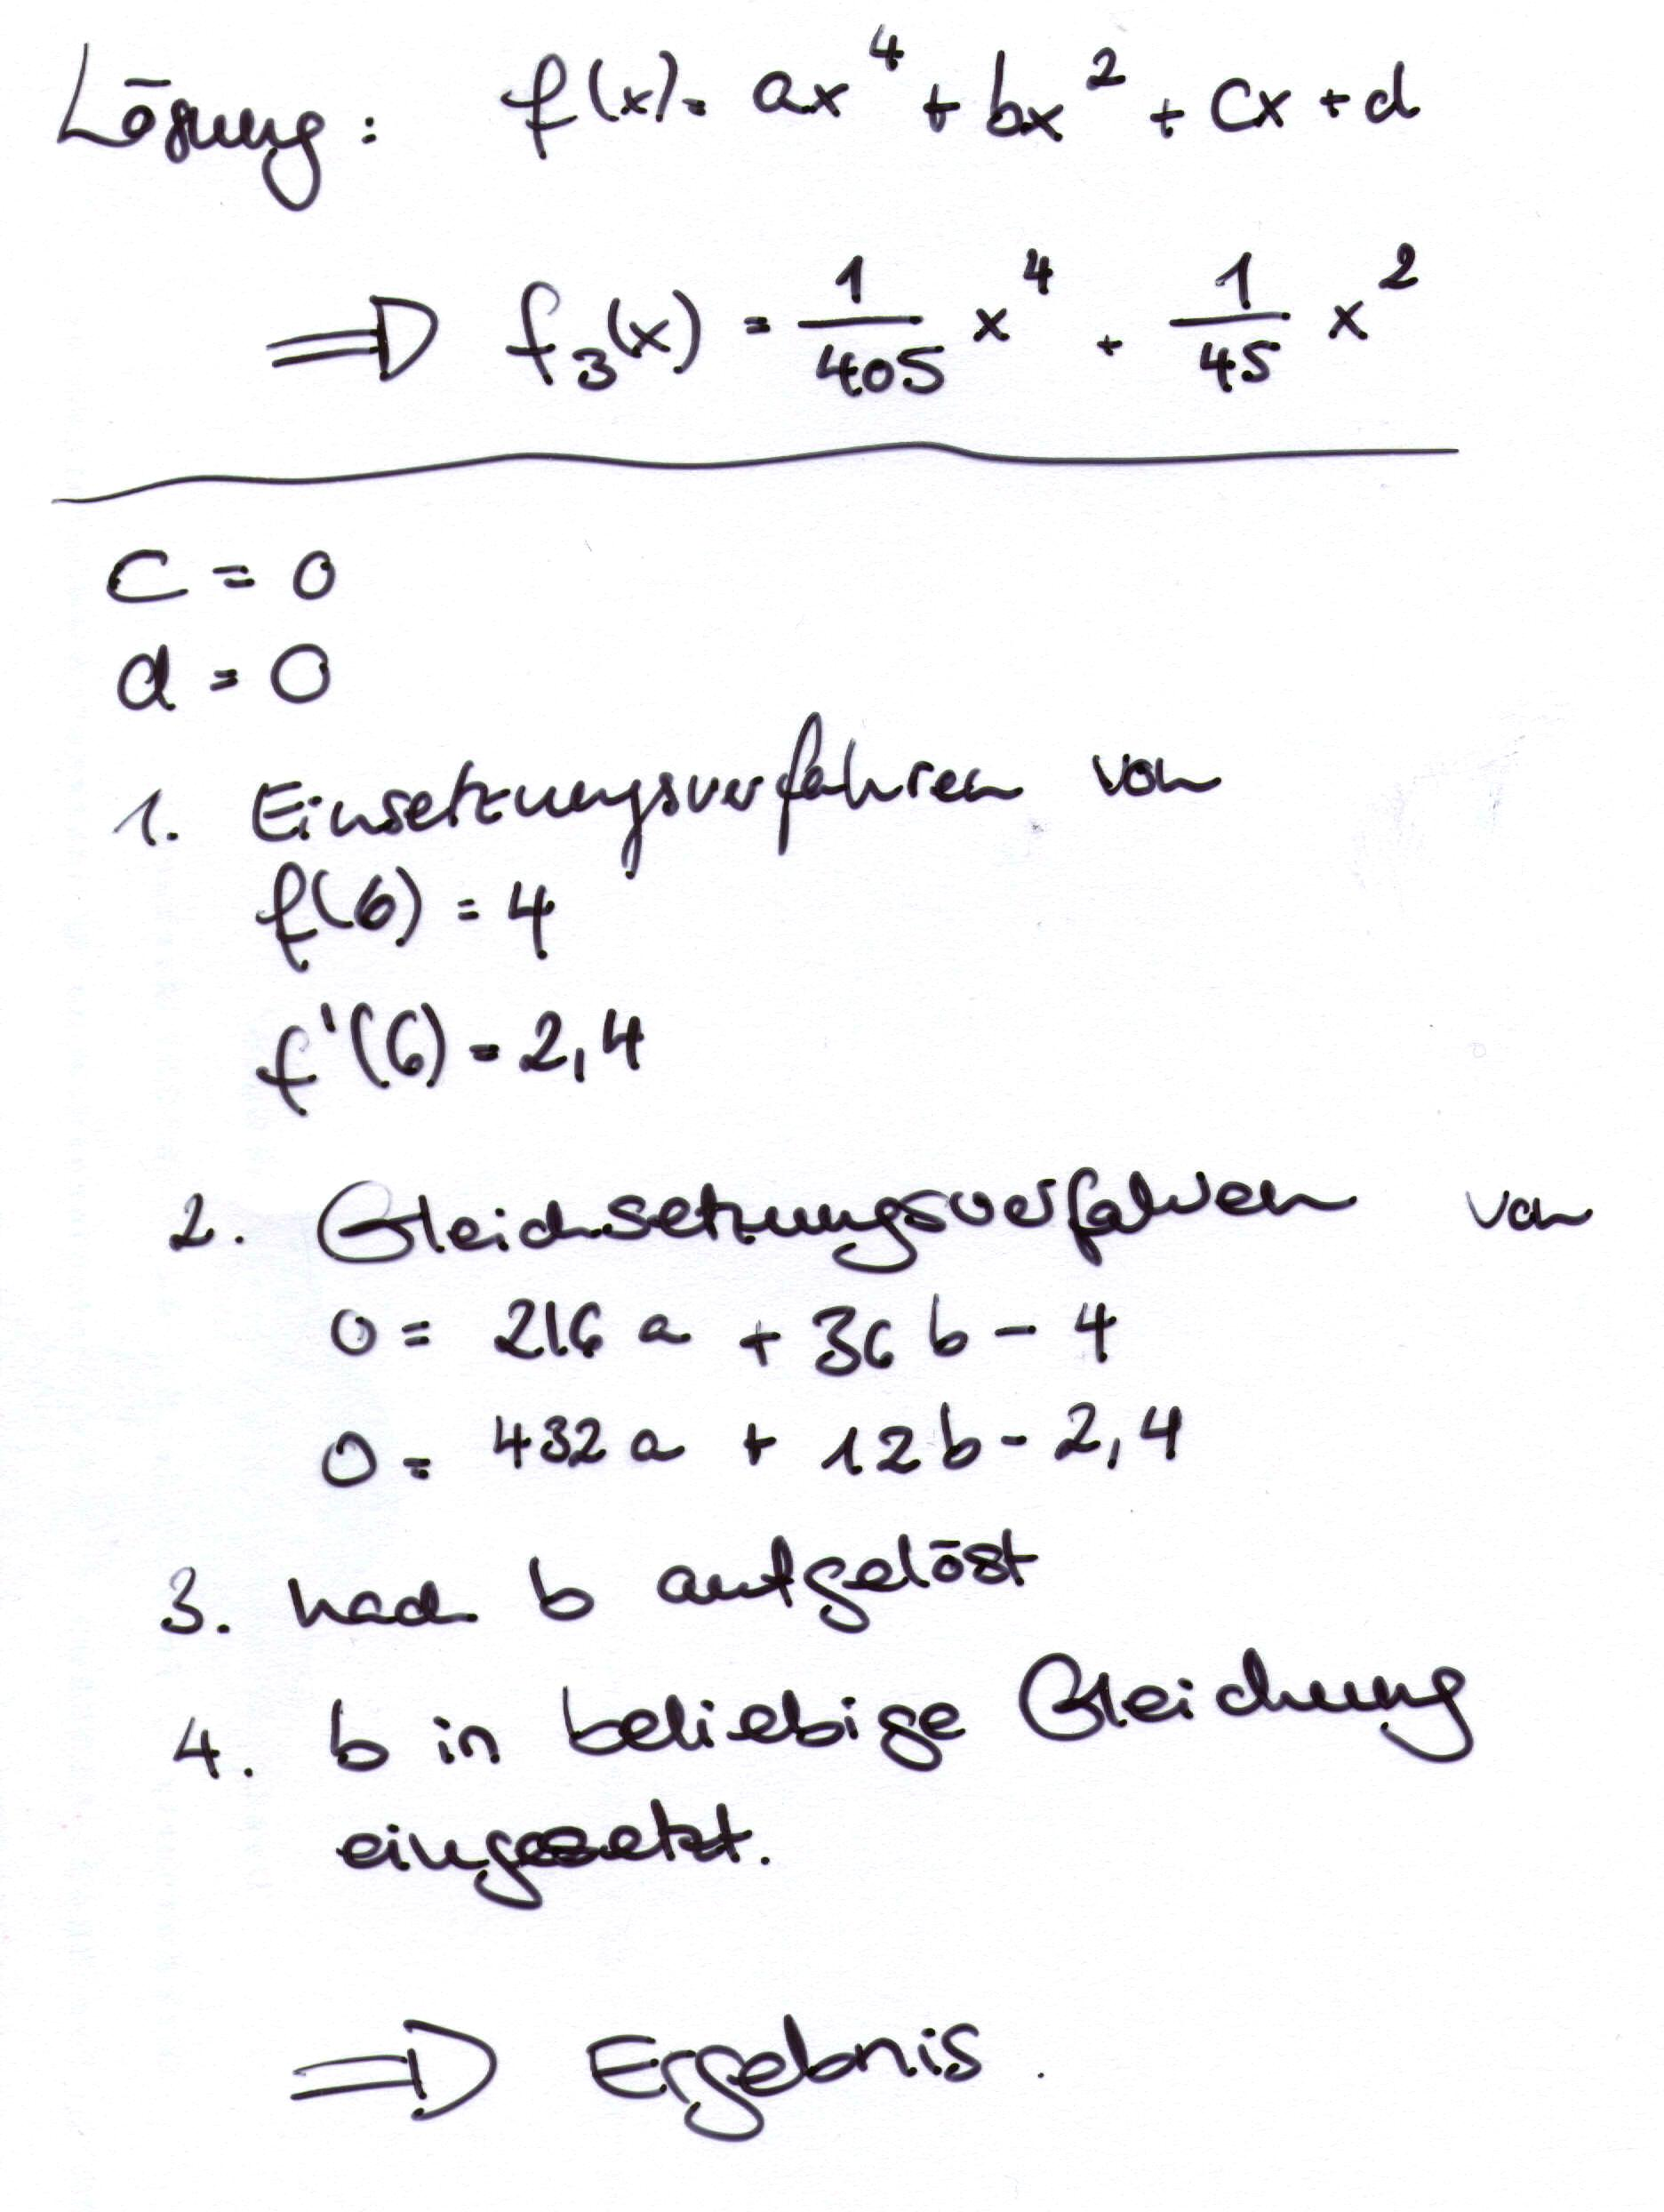 Lösung: f(x) = ax⁴ + bx² + cx + d
⇒ f₃(x) = 1/405 x⁴ + 1/45 x²
c = 0
d = 0
1. Einsetzungsverfahren von
f(6) = 4
f'(6) = 2,4
2. Gleichsetzungsverfahren von
0 = 216 a + 36 b - 4
0 = 432 a + 12 b - 2,4
3. nach b aufgelöst
4. b in beliebige Gleichung
eingesetzt.
⇒ Ergebnis.